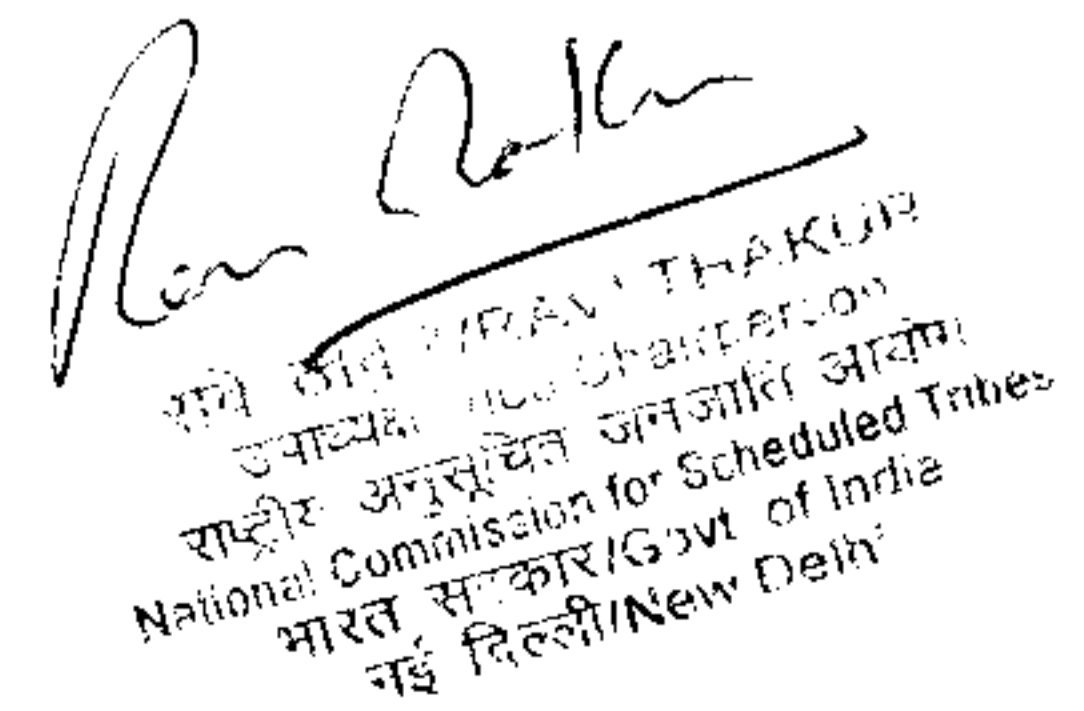 रवि ठाकुर/RAVI THAKUR
उपाध्यक्ष/Vice Chairperson
राष्ट्रीय अनुसूचित जनजाति आयोग
National Commission for Scheduled Tribes
भारत सरकार/Govt of India
नई दिल्ली/New Delhi